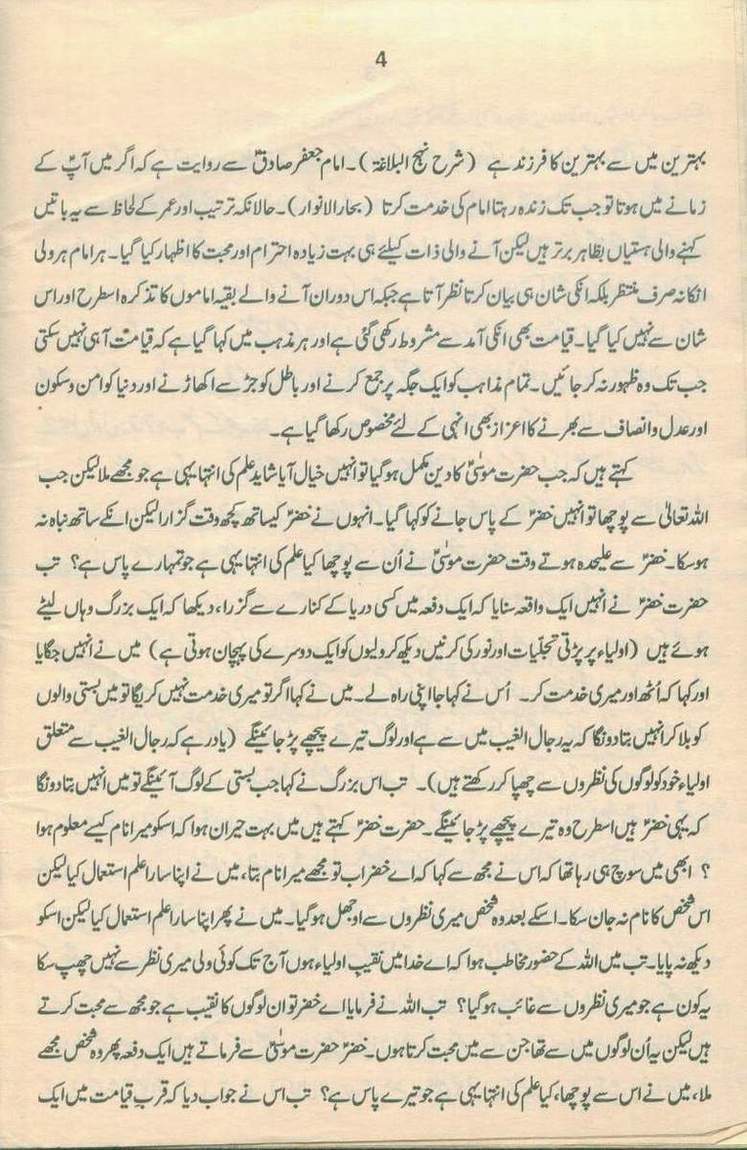 4
بہترین میں سے بہترین کا فرزند ہے (شرح نہج البلاغۃ)۔ امام جعفر صادقؑ سے روایت ہے کہ اگر میں آپؑ کے
زمانے میں ہوتا تو جب تک زندہ رہتا امام کی خدمت کرتا (بحارالانوار)۔ حالانکہ ترتیب اور عمر کے لحاظ سے یہ باتیں
کہنے والی ہستیاں بظاہر برتر ہیں لیکن آنے والی ذات کیلئے ہی بہت زیادہ احترام اور محبت کا اظہار کیا گیا۔ ہر امام ہر ولی
انکا نہ صرف منتظر بلکہ انکی شان ہی بیان کرتا نظر آتا ہے جبکہ اس دوران آنے والے بقیہ اماموں کا تذکرہ اسطرح اور اس
شان سے نہیں کیا گیا۔ قیامت بھی انکی آمد سے مشروط رکھی گئی ہے اور ہر مذہب میں کہا گیا ہے کہ قیامت آ ہی نہیں سکتی
جب تک وہ ظہور نہ کر جائیں۔ تمام مذاہب کو ایک جگہ پر جمع کرنے اور باطل کو جڑ سے اکھاڑنے اور دنیا کو امن و سکون
اور عدل و انصاف سے بھرنے کا اعزاز بھی انہی کے لئے مخصوص رکھا گیا ہے۔
کہتے ہیں کہ جب حضرت موسیٰؑ کا دین مکمل ہو گیا تو انہیں خیال آیا شاید علم کی انتہا یہی ہے جو مجھے ملا لیکن جب
اللہ تعالیٰ سے پوچھا تو انہیں خضرؑ کے پاس جانے کو کہا گیا۔ انہوں نے خضرؑ کیساتھ کچھ وقت گزارا لیکن انکے ساتھ نباہ نہ
ہو سکا۔ خضرؑ سے علیحدہ ہوتے وقت حضرت موسیٰؑ نے اُن سے پوچھا کیا علم کی انتہا یہی ہے جو تمہارے پاس ہے؟ تب
حضرت خضرؑ نے انہیں ایک واقعہ سنایا کہ ایک دفعہ میں کسی دریا کے کنارے سے گزرا، دیکھا کہ ایک بزرگ وہاں لیٹے
ہوئے ہیں (اولیاء پر پڑتی تجلّیات اور نور کی کرنیں دیکھ کر ولیوں کو ایک دوسرے کی پہچان ہوتی ہے) میں نے انہیں جگایا
اور کہا کہ اُٹھ اور میری خدمت کر۔ اُس نے کہا جا اپنی راہ لے۔ میں نے کہا اگر تو میری خدمت نہیں کریگا تو میں بستی والوں
کو بلا کر انہیں بتا دونگا کہ یہ رجال الغیب میں سے ہے اور لوگ تیرے پیچھے پڑ جائینگے (یاد رہے کہ رجال الغیب سے متعلق
اولیاء خود کو لوگوں کی نظروں سے چھپا کر رکھتے ہیں)۔ تب اس بزرگ نے کہا جب بستی کے لوگ آئینگے تو میں انہیں بتا دونگا
کہ یہی خضرؑ ہیں اسطرح وہ تیرے پیچھے پڑ جائینگے۔ حضرت خضرؑ کہتے ہیں میں بہت حیران ہوا کہ اسکو میرا نام کیسے معلوم ہوا
؟ ابھی میں سوچ ہی رہا تھا کہ اس نے مجھ سے کہا کہ اے خضر اب تو مجھے میرا نام بتا، میں نے اپنا سارا علم استعمال کیا لیکن
اس شخص کا نام نہ جان سکا۔ اسکے بعد وہ شخص میری نظروں سے اوجھل ہو گیا۔ میں نے پھر اپنا سارا علم استعمال کیا لیکن اسکو
دیکھ نہ پایا۔ تب میں اللہ کے حضور مخاطب ہوا کہ اے خدا میں نقیبِ اولیاء ہوں آج تک کوئی ولی میری نظر سے نہیں چھپ سکا
یہ کون ہے جو میری نظروں سے غائب ہو گیا؟ تب اللہ نے فرمایا اے خضر تو ان لوگوں کا نقیب ہے جو مجھ سے محبت کرتے
ہیں لیکن یہ اُن لوگوں میں سے تھا جن سے میں محبت کرتا ہوں۔ خضرؑ حضرت موسیٰؑ سے فرماتے ہیں ایک دفعہ پھر وہ شخص مجھے
ملا، میں نے اس سے پوچھا، کیا علم کی انتہا یہی ہے جو تیرے پاس ہے؟ تب اس نے جواب دیا کہ قربِ قیامت میں ایک